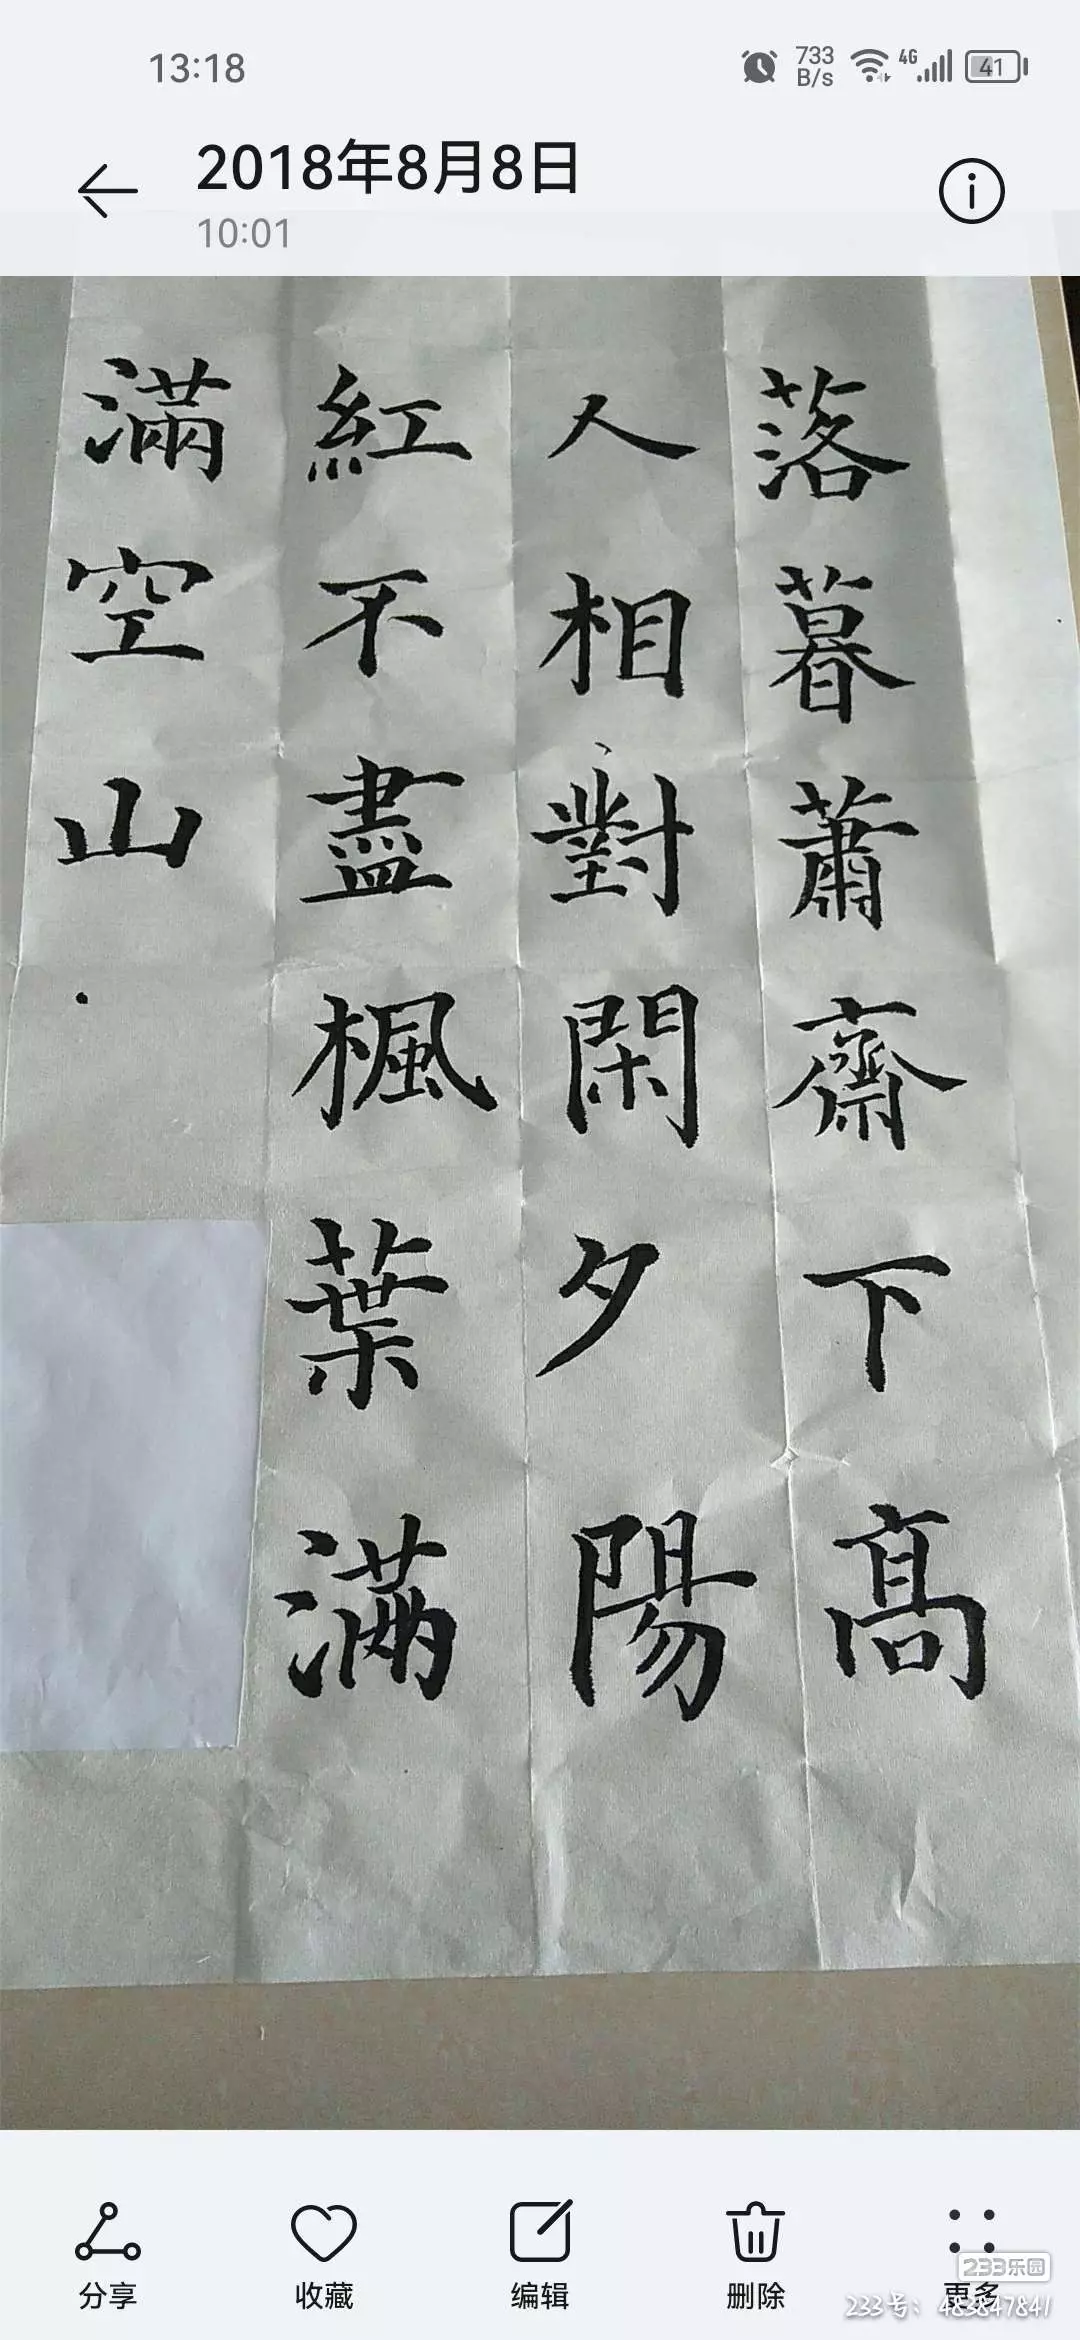 13:18
733 B/s
4G
41
2018年8月8日
10:01
落暮蕭齋下高
人相對閑夕陽
紅不盡楓葉滿
滿空山
分享
收藏
编辑
删除
更多
233乐园
233号：483847841